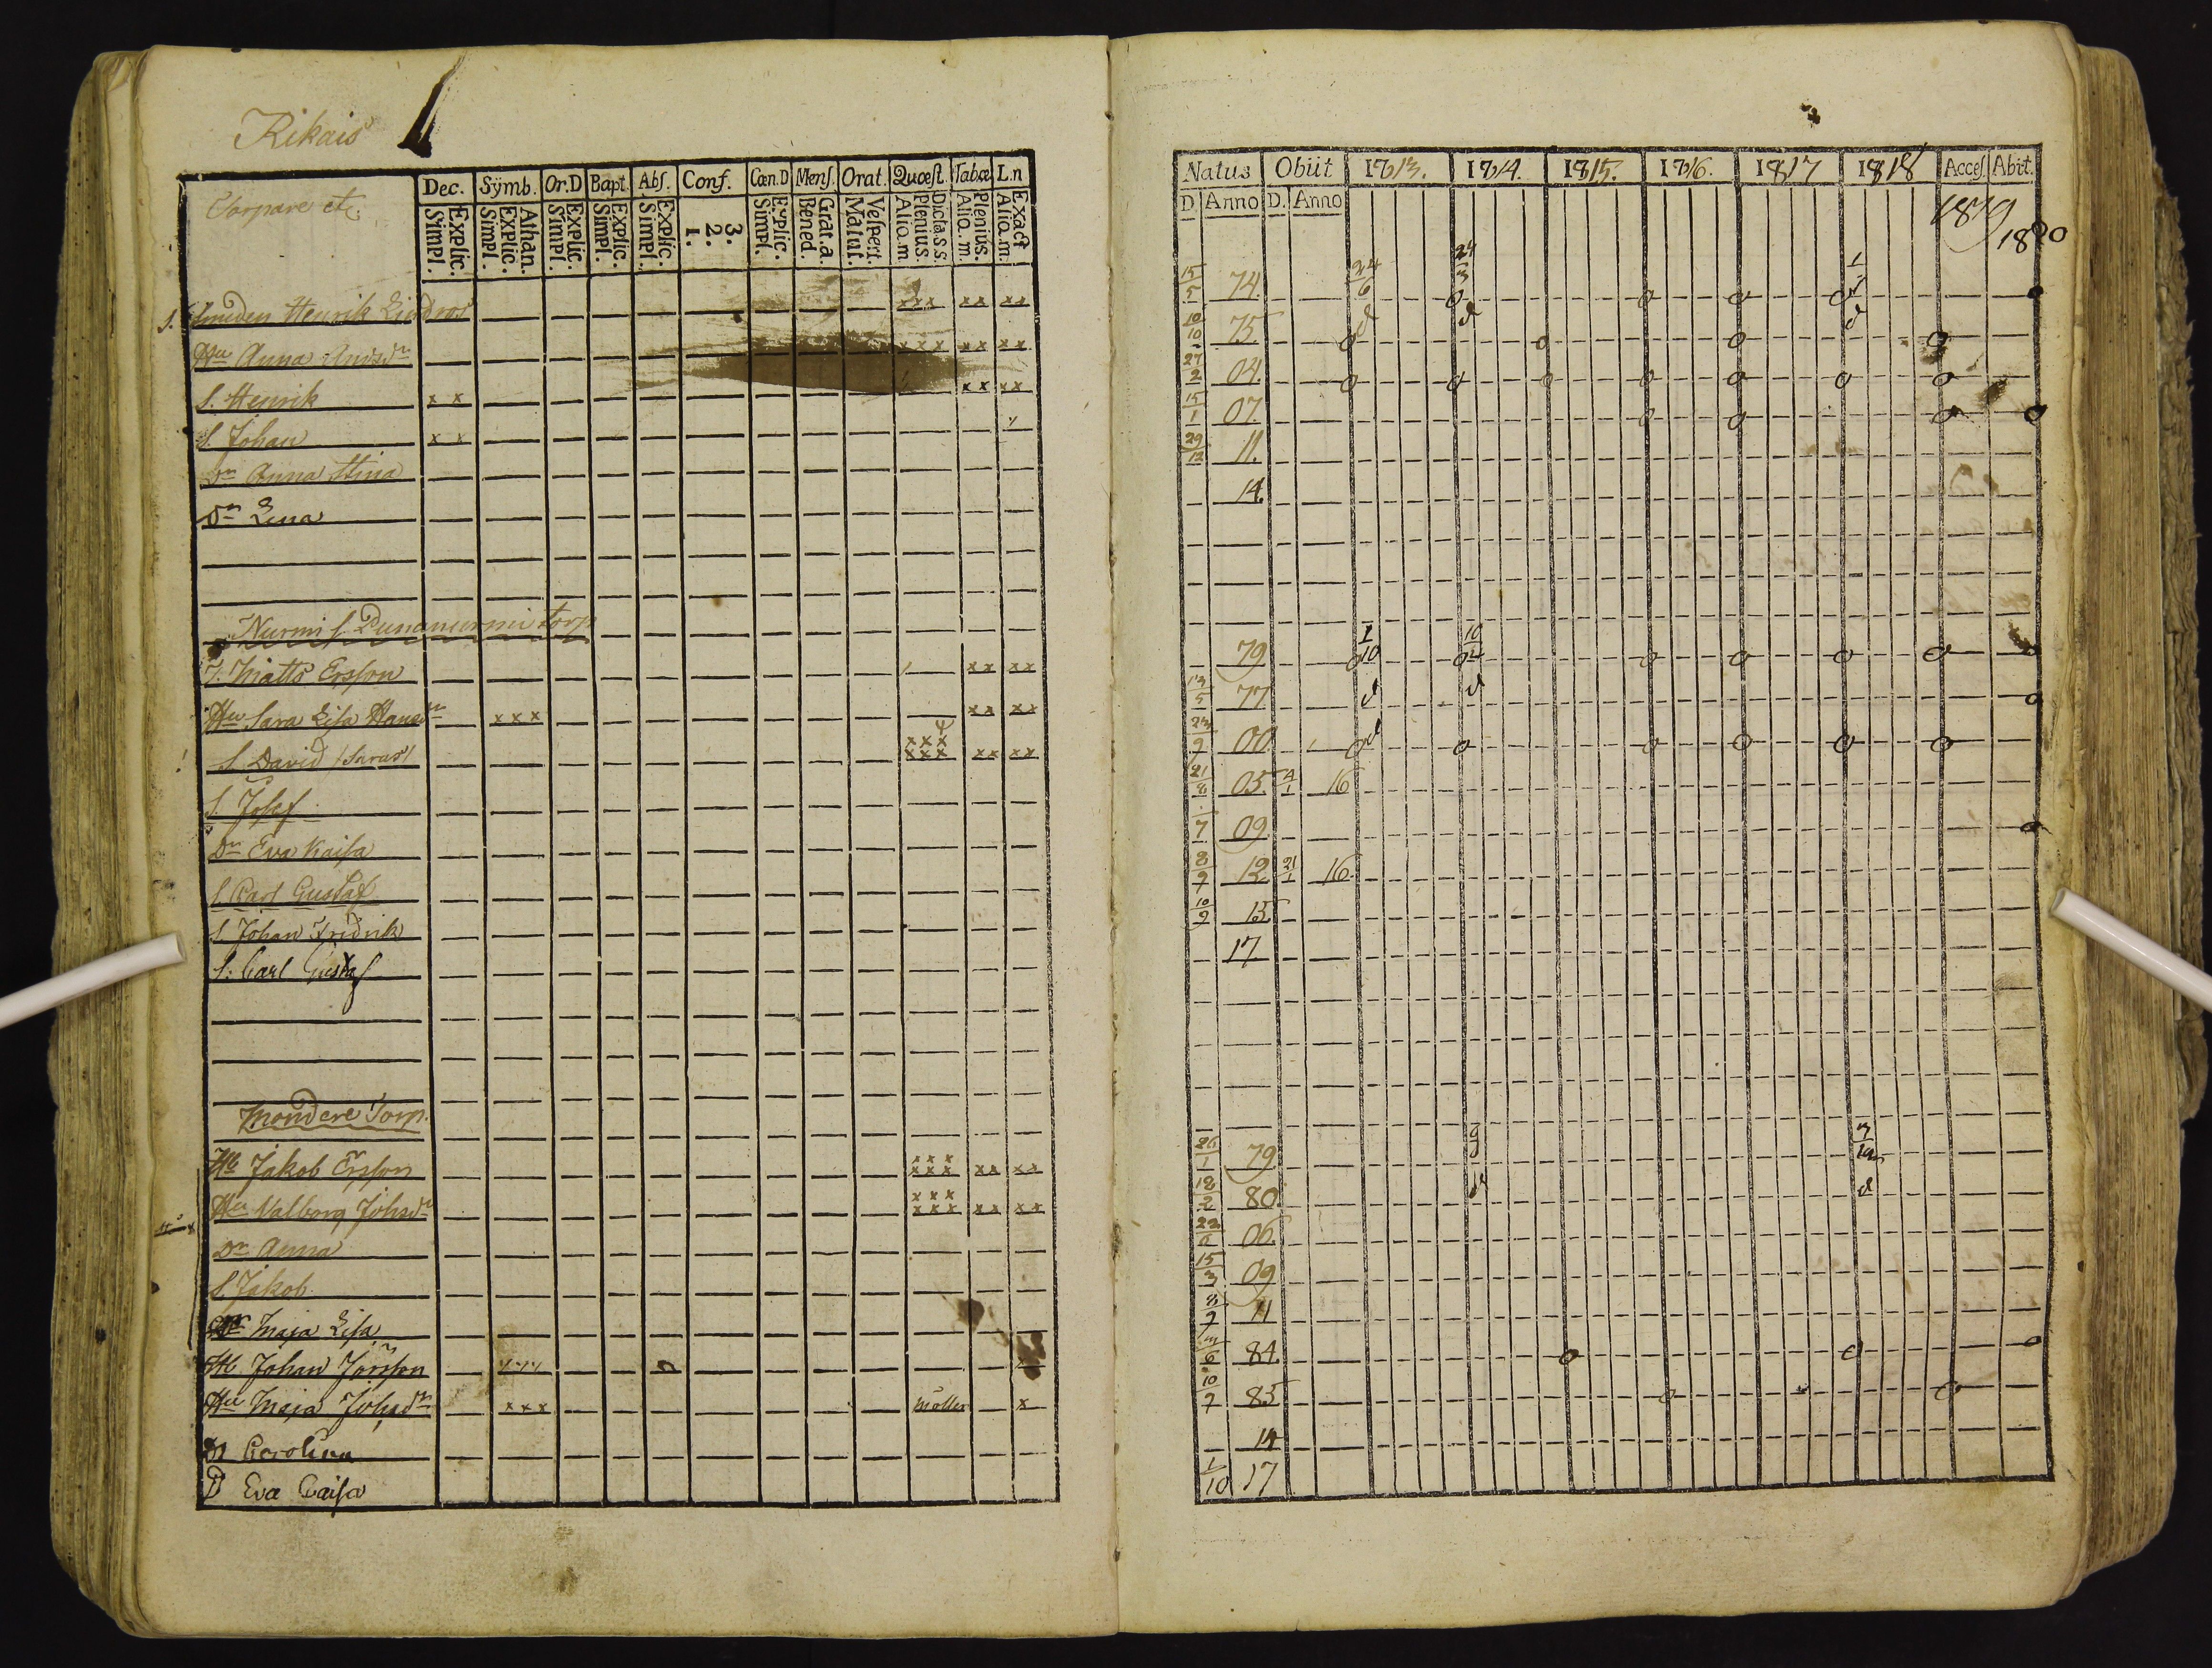 Rikais
Torpare etc.
Dec. Symb. Or.D Bapt. Abs. Conf. Cœn.D Mens. Orat. Quœst. Tabœ L.n
Explic. Simpl. Athan. Explic. Simpl. Explic. Simpl. Explic. Simpl. Explic. Simpl. 3. 2. 1. Explic. Simpl. Grat.a. Bened. Vespert. Matut. Dicta.s.s. Plenius. Alio.m Plenius. Alio.m. Exact Alio.m.
Smeden Henrik Lindros xxx xx xx
Hu Anna Andsdr xxx xx xx
S. Henrik xx xx xx
S. Johan xx
Dr Anna Stina
Dr Lena
Nurmi l. Punanurmi torp
T. Matts Ersson xx xx
Hu Sara Lisa Hansdr xxx xx xx
S. David /Saras/ xxx xxx xx xx
S. Josef
Dr Eva Kaisa
S. Carl Gustaf
S. Johan Fridrik
S. Carl Gustaf
Mondere Torp.
Hb Jakob Ersson xxx xxx xx xx
Hu Valborg Johsdr xxx xxx xx xx
Dr Anna
S. Jakob
Dr Maja Lisa
Hb Johan Jörsson
Hu Maja Johsdr xxx möller x
D Carolina
D Eva Caisa
Natus Obiit 1813. 1814. 1815. 1816. 1817 1818 Acces. Abiit.
D. Anno D. Anno 1819 1820
15/5 74. 24/6 24/3
10/10 75.
27/2 04.
15/1 07.
29/12 11.
14.
79 1/10 10/4
13/5 77
23/9 00
21/8 05. 4/1 16
7 09
8/9 12 21/1 16
10/9 15
17
26/1 79
18/2 80.
06.
15/3 09
8/9 11
84
10/7 85
14
1/10 17